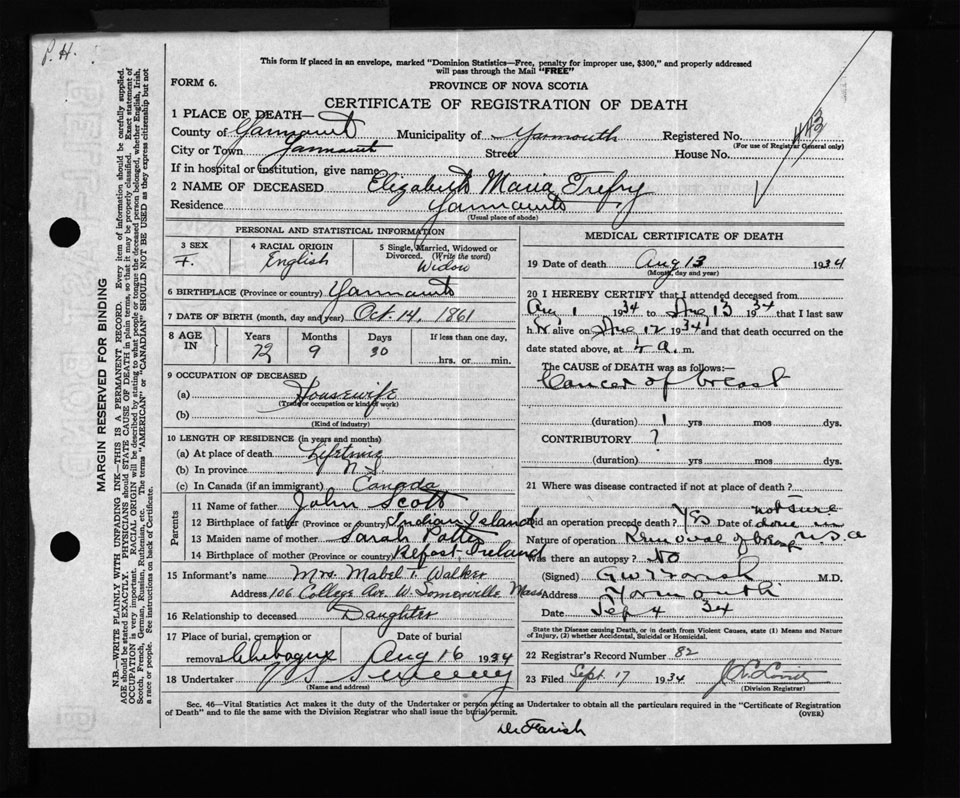 P. H.
This form if placed in an envelope, marked "Dominion Statistics—Free, penalty for improper use, $300," and properly addressed
will pass through the Mail "FREE"
FORM 6.
PROVINCE OF NOVA SCOTIA
CERTIFICATE OF REGISTRATION OF DEATH
1 PLACE OF DEATH—
County of Yarmouth Municipality of Yarmouth Registered No. 443
(For use of Registrar General only)
City or Town Yarmouth Street House No.
If in hospital or institution, give name
2 NAME OF DECEASED Elizabeth Maria Trefry
Residence Yarmouth
(Usual place of abode)
PERSONAL AND STATISTICAL INFORMATION
3 SEX
F.
4 RACIAL ORIGIN
English
5 Single, Married, Widowed or
Divorced. (Write the word)
Widow
6 BIRTHPLACE (Province or country) Yarmouth
7 DATE OF BIRTH (month, day and year) Oct 14, 1861
8 AGE
IN
Years
72
Months
9
Days
30
If less than one day,
hrs. or min.
9 OCCUPATION OF DECEASED
(a) Housewife
(Trade or occupation or kind of work)
(b)
(Kind of industry)
10 LENGTH OF RESIDENCE (in years and months)
(a) At place of death Lifetime
(b) In province N S
(c) In Canada (if an immigrant) Canada
Parents
11 Name of father John Scott
12 Birthplace of father (Province or country) Indian Island
13 Maiden name of mother Sarah Potter
14 Birthplace of mother (Province or country) Belfast Ireland
15 Informant's name Mrs. Mabel T. Walker
Address 106 College Ave. W. Somerville Mass
16 Relationship to deceased Daughter
17 Place of burial, cremation or
removal Chebogue
Date of burial
Aug 16 1934
18 Undertaker V S Sweeny
(Name and address)
MEDICAL CERTIFICATE OF DEATH
19 Date of death Aug 13 1934
(Month, day and year)
20 I HEREBY CERTIFY that I attended deceased from
Aug 1 1934 to Aug 13 1934 that I last saw
h er alive on Aug 12 1934 and that death occurred on
date stated above, at a. m.
The CAUSE OF DEATH was as follows:—
Cancer of breast
(duration) 1 yrs mos dys.
CONTRIBUTORY ?
(duration) yrs mos dys.
21 Where was disease contracted if not at place of death?
Did an operation precede death? Yes Date of not sure
done in
Nature of operation Removal of breast U.S.A
Was there an autopsy? No
(Signed) G W T Farish M.D.
Address Yarmouth
Date Sep 4 34
State the Disease causing Death, or in death from Violent Causes, state (1) Means and Nature
of Injury, (2) whether Accidental, Suicidal or Homicidal.
22 Registrar's Record Number 82
23 Filed Sept. 17 1934
(Division Registrar)
Sec. 46—Vital Statistics Act makes it the duty of the Undertaker or person acting as Undertaker to obtain all the particulars required in the "Certificate of Registration
of Death" and to file the same with the Division Registrar who shall issue the burial permit. (OVER)
Dr Farish
MARGIN RESERVED FOR BINDING
N.B.—WRITE PLAINLY WITH UNFADING INK—THIS IS A PERMANENT RECORD. Every item of information should be carefully supplied.
AGE should be stated EXACTLY. PHYSICIANS should STATE CAUSE OF DEATH in plain terms, so that it may be properly classified. Exact statement of
OCCUPATION is very important. RACIAL ORIGIN will be described by stating to what people or tongue the deceased person belonged, whether English, Irish,
Scotch, French, German, Russian, Ruthenian, etc. The terms "AMERICAN" or "CANADIAN" SHOULD NOT BE USED as they express citizenship but not
a race or people. See instructions on back of Certificate.